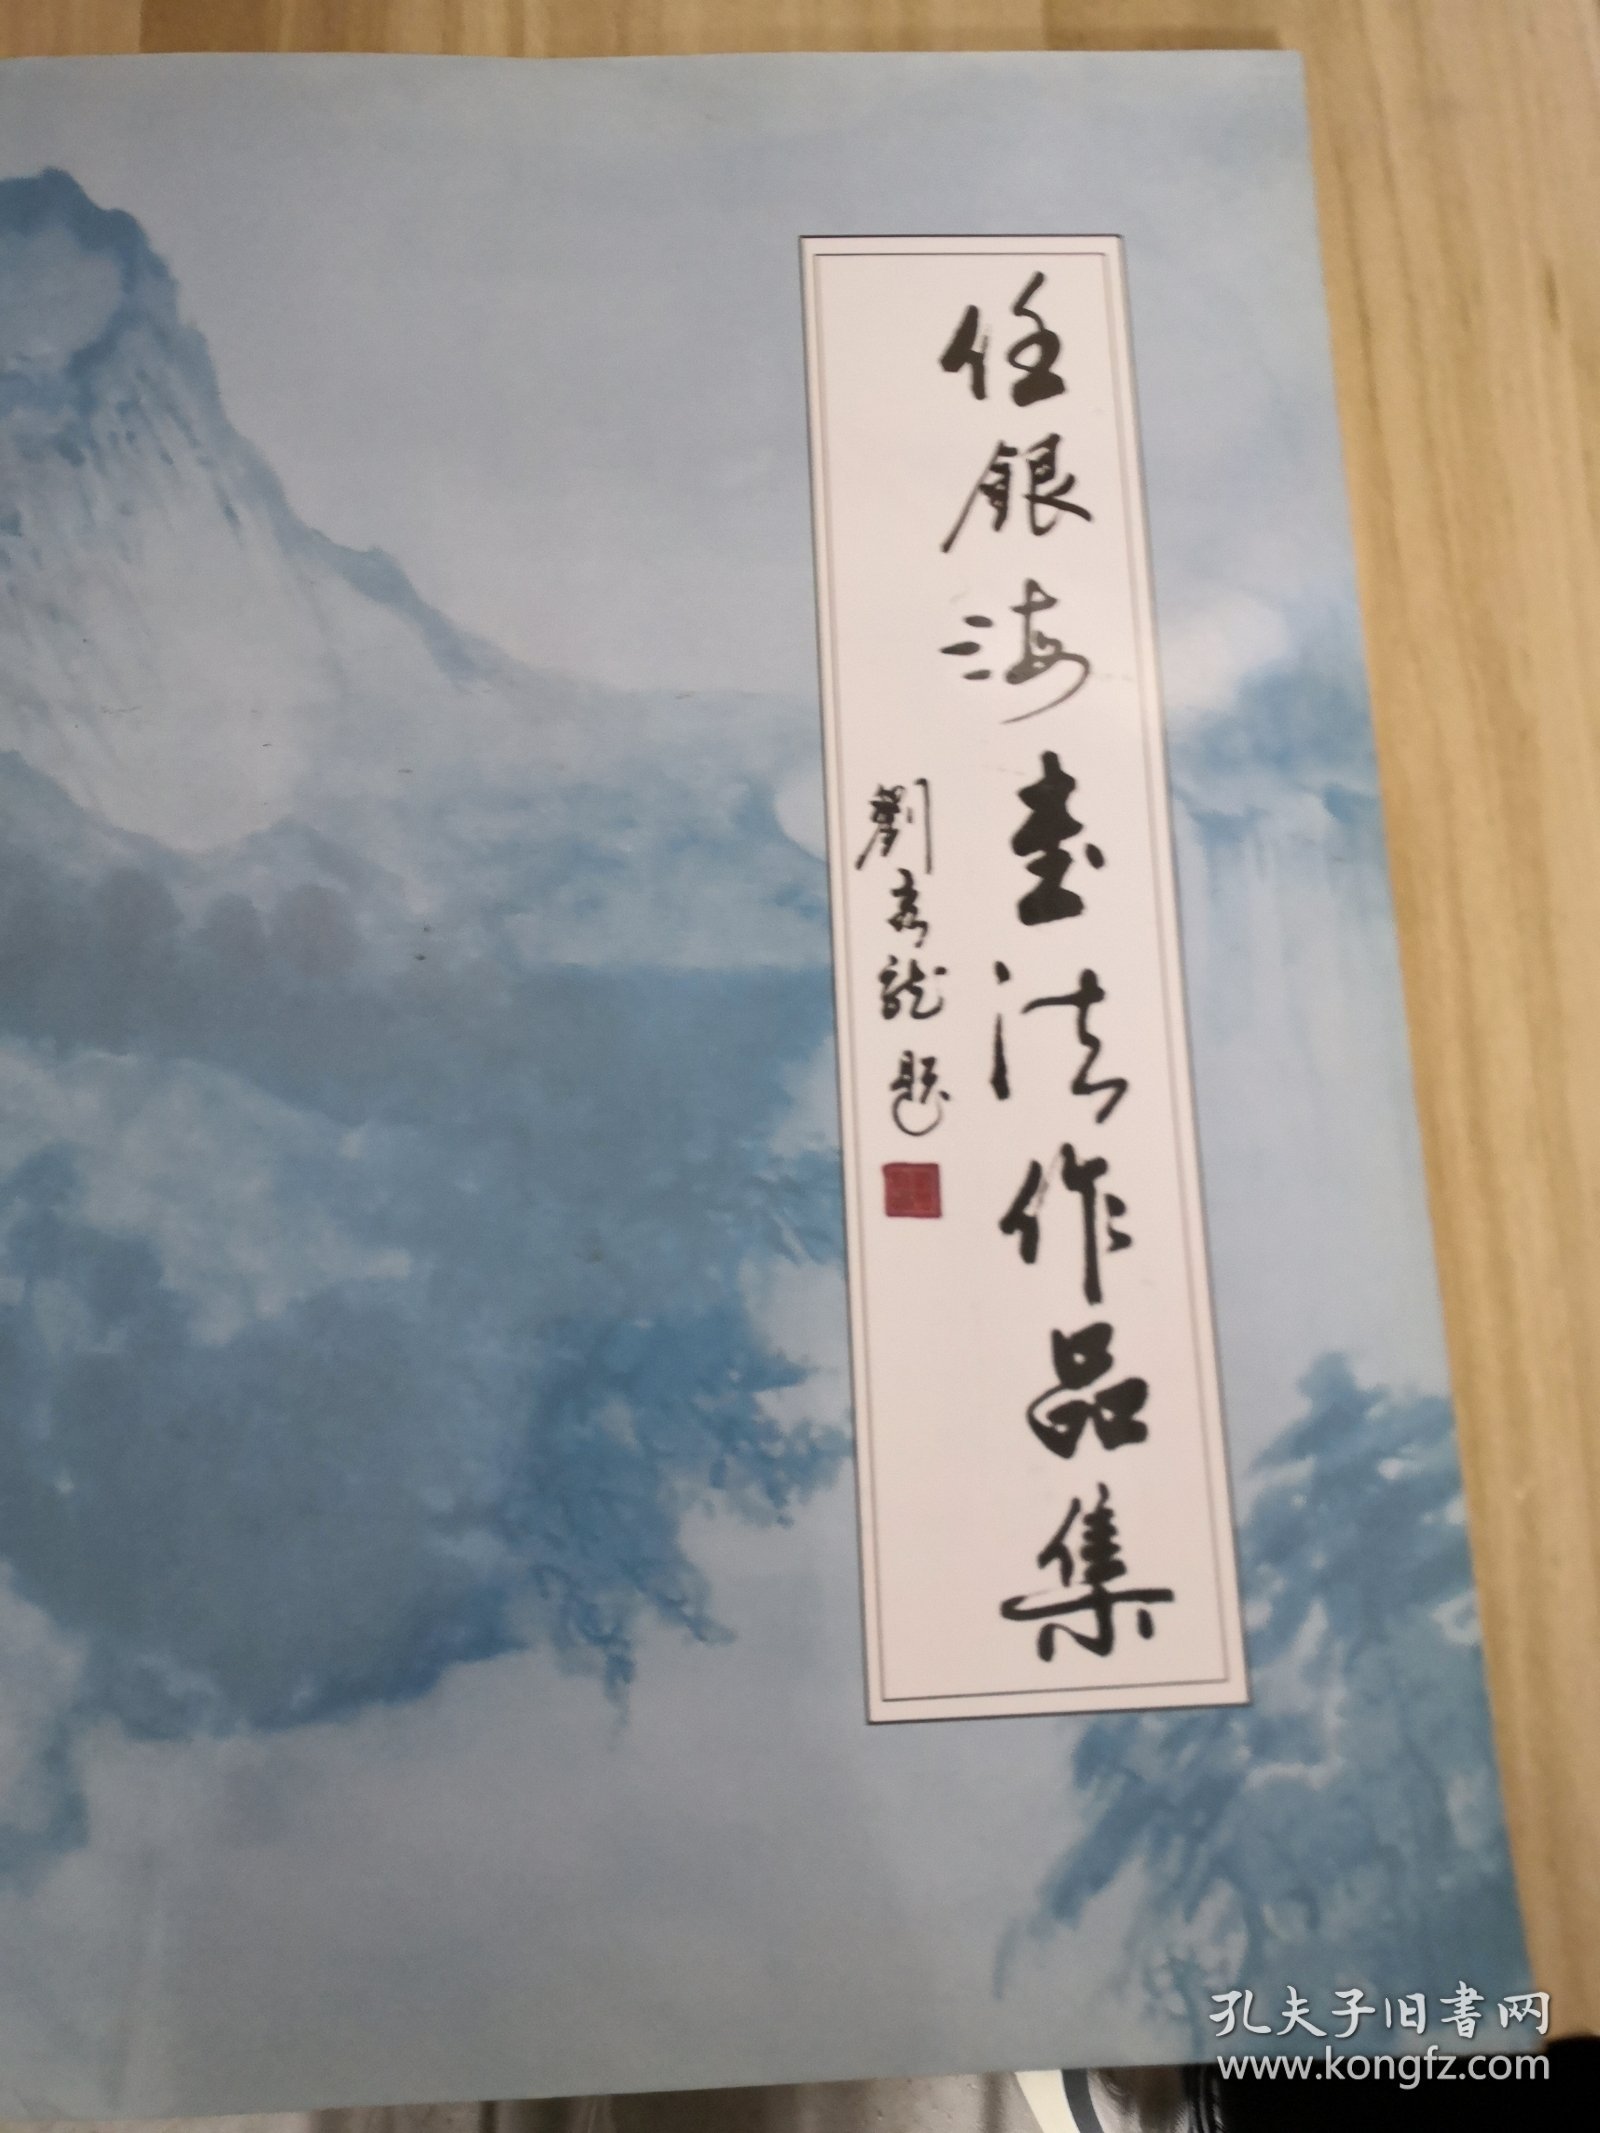 任銀海書法作品集
劉 龍題
孔夫子旧書网
www.kongfz.com